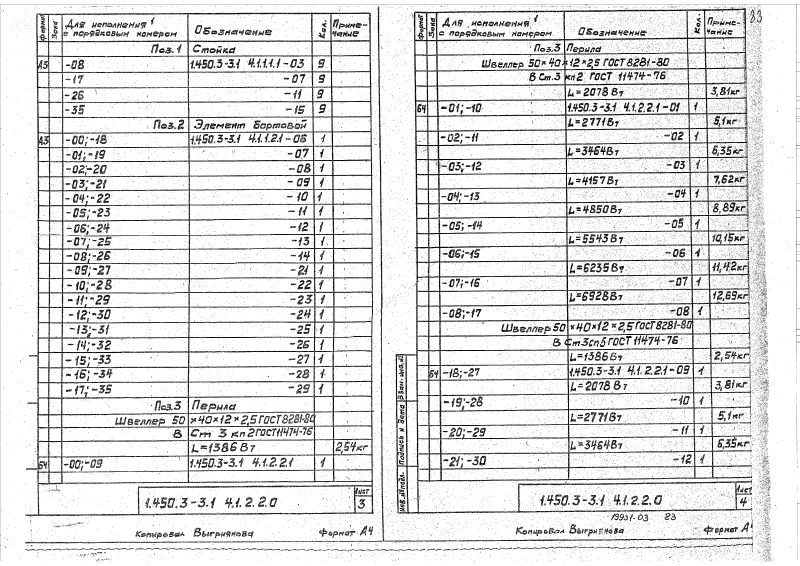 Формат Зона Для исполнения 1 с порядковым номером Обозначение Кол. Примечание
Поз.1 Стойка
А3 -08 1.450.3-3.1 4.1.1.1.1-03 9
-17 -07 9
-26 -11 9
-35 -15 9
Поз.2 Элемент бортовой
А3 -00;-18 1.450.3-3.1 4.1.1.2.1-06 1
-01;-19 -07 1
-02;-20 -08 1
-03;-21 -09 1
-04;-22 -10 1
-05;-23 -11 1
-06;-24 -12 1
-07;-25 -13 1
-08;-26 -14 1
-09;-27 -21 1
-10;-28 -22 1
-11;-29 -23 1
-12;-30 -24 1
-13;-31 -25 1
-14;-32 -26 1
-15;-33 -27 1
-16;-34 -28 1
-17;-35 -29 1
Поз.3 Перила
Швеллер 50×40×12×2,5 ГОСТ 8281-80
В Ст 3 кп2 ГОСТ 11474-76
L=1386 Вт 2,54кг
б4 -00;-09 1.450.3-3.1 4.1.2.2.1 1
1.450.3-3.1 4.1.2.2.0 Лист 3
Копировал Выгриянова Формат А4
83
Формат Зона Для исполнения 1 с порядковым номером Обозначение Кол. Примечание
Поз.3 Перила
Швеллер 50×40×12×2,5 ГОСТ 8281-80
В Ст.3 кп2 ГОСТ 11474-76
L=2078 Вт 3,81кг
б4 -01;-10 1.450.3-3.1 4.1.2.2.1-01 1
L=2771 Вт 5,1кг
-02;-11 -02 1
L=3464 Вт 6,35кг
-03;-12 -03 1
L=4157 Вт 7,62кг
-04;-13 -04 1
L=4850 Вт 8,89кг
-05;-14 -05 1
L=5543 Вт 10,15кг
-06;-15 -06 1
L=6235 Вт 11,42кг
-07;-16 -07 1
L=6928 Вт 12,69кг
-08;-17 -08 1
Швеллер 50×40×12×2,5 ГОСТ 8281-80
В Ст3сп5 ГОСТ 11474-76
L=1386 Вт 2,54кг
б4 -18;-27 1.450.3-3.1 4.1.2.2.1-09 1
L=2078 Вт 3,81кг
-19;-28 -10 1
L=2771 Вт 5,1кг
-20;-29 -11 1
L=3464 Вт 6,35кг
-21;-30 -12 1
Инв.№подл. Подпись и дата Взам.инв.№
1.450.3-3.1 4.1.2.2.0 Лист 4
19931-03 83
Копировал Выгриянова Формат А4